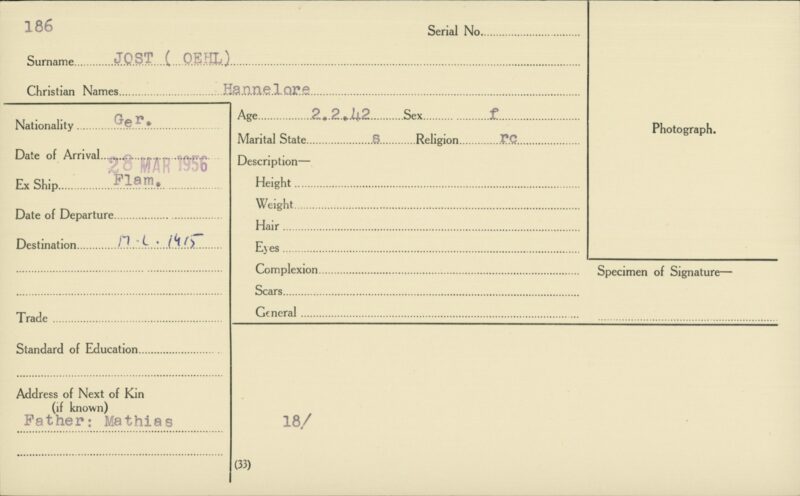 186
Serial No.
Surname JOST ( OEHL)
Christian Names Hannelore
Nationality Ger.
Date of Arrival 28 MAR 1956
Ex Ship Flam.
Date of Departure
Destination M.L. 1415
Trade
Standard of Education
Address of Next of Kin
(if known)
Father: Mathias
Age 2.2.42 Sex f
Marital State s Religion rc
Description—
Height
Weight
Hair
Eyes
Complexion
Scars
General
18/
(33)
Photograph.
Specimen of Signature—